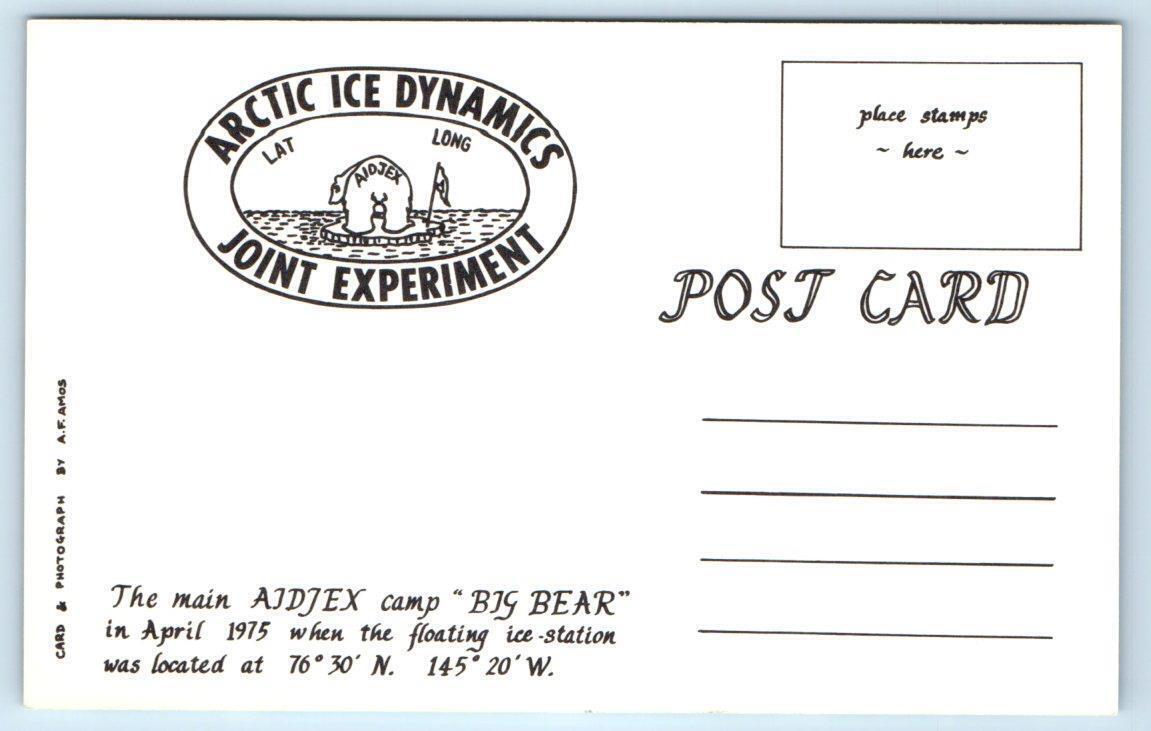 ARCTIC ICE DYNAMICS
LAT LONG
AIDJEX
JOINT EXPERIMENT
place stamps
~ here ~
POST CARD
CARD & PHOTOGRAPH BY A.F. AMOS
The main AIDJEX camp "BIG BEAR"
in April 1975 when the floating ice-station
was located at 76° 30′ N. 145° 20′ W.